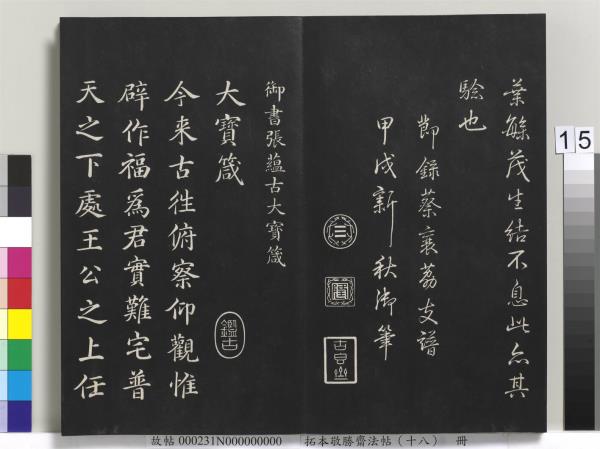 葉緜茂生結不息此亦其
驗也
節錄蔡襄荔支譜
甲戌新秋御筆
三
御書張蘊古大寶箴
大寶箴
今来古往俯察仰觀惟
辟作福爲君實難宅普
天之下處王公之上任
鑑古
15
故帖 000231N000000000 拓本敬勝齋法帖(十八) 冊